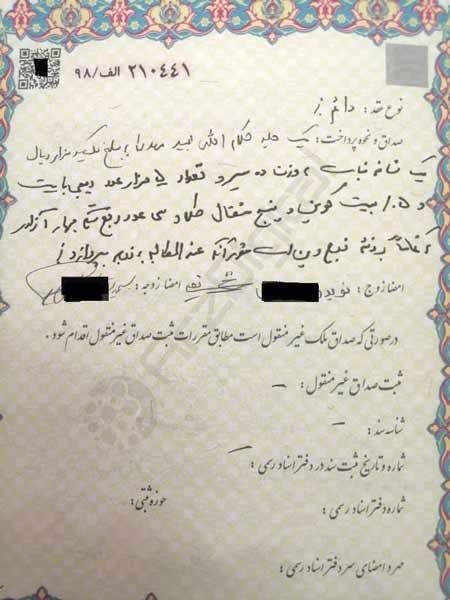 ۲۱۰۴۴۱ الف/۹۸
نوع عقد: دائم
صداق و نحوه پرداخت: یک جلد کلام الله مجید مهریه به مبلغ یکصد هزار ریال
یک شاخه نبات به وزن ده سیر و تعداد ۵ هزار عدد دیجی بایت
و ۱.۵ بیت کوین و پنج مثقال طلا و سی عدد ربع سکه بهار آزادی
که زوج عندالمطالبه به زوجه بپردازد
امضا زوج: نوید امضا زوجه:
درصورتی که صداق ملک غیر منقول است مطابق مقررات ثبت صداق غیر منقول اقدام شود.
ثبت صداق غیر منقول: –
شناسه سند: –
شماره و تاریخ ثبت سند در دفتر اسناد رسمی: –
شماره دفتر اسناد رسمی: حوزه ثبتی:
مهر و امضای سردفتر اسناد رسمی: